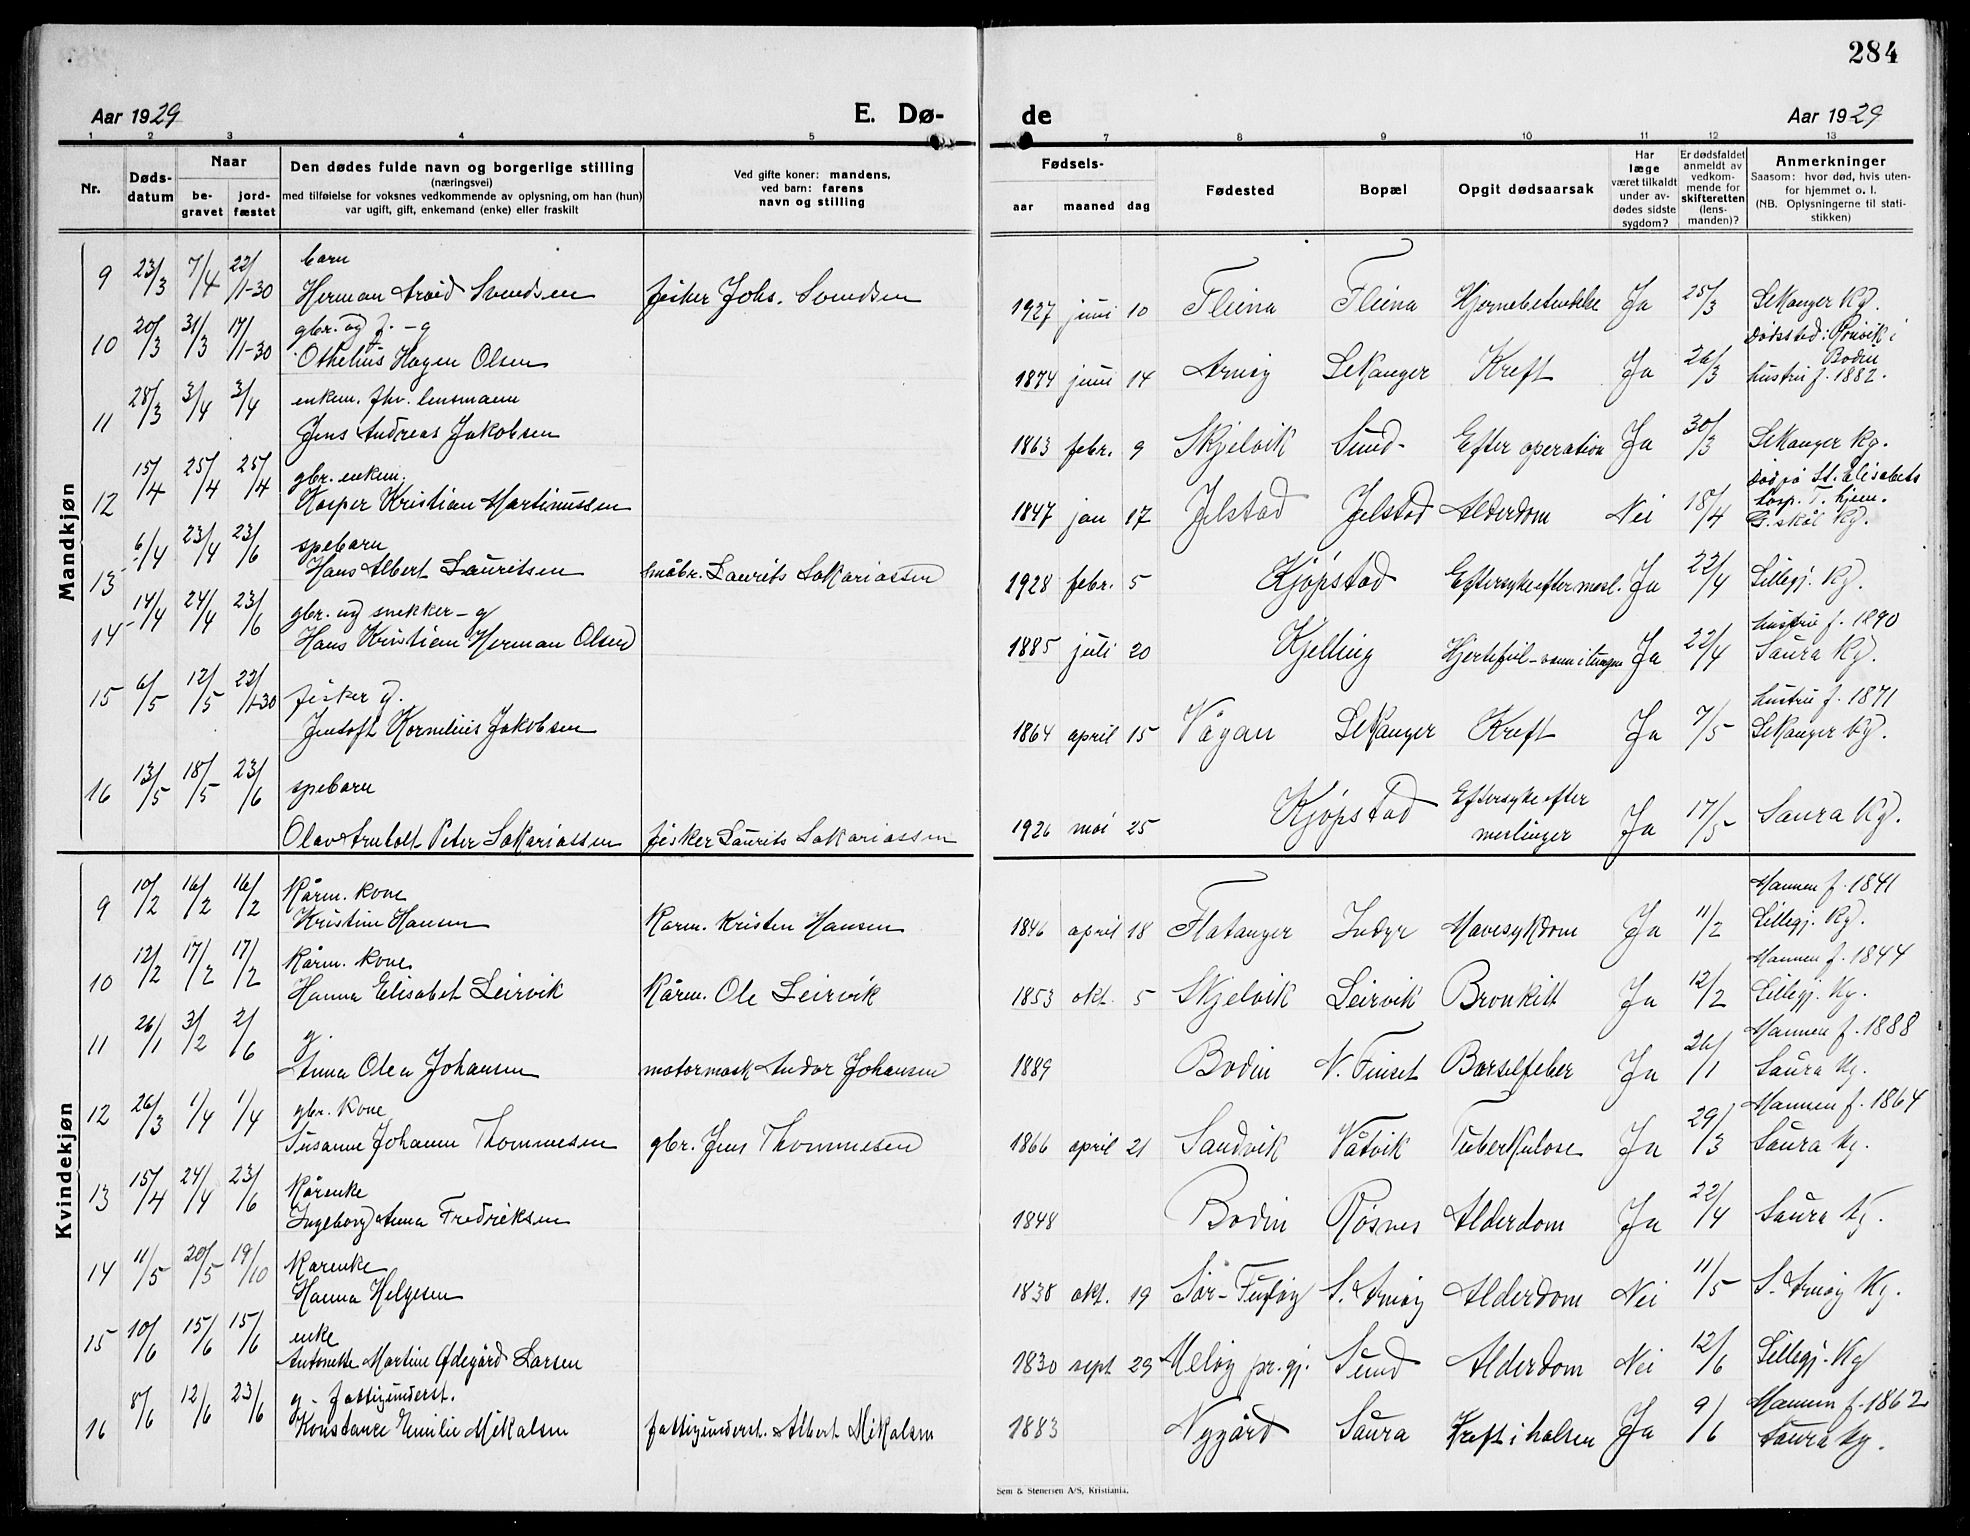 284
Aar 1929
E. Dø-
de
Aar 1929
1 2 3 4 5 7 8 9 10 11 12 13
Nr.
Døds-
datum
Naar
be-
gravet
jord-
fæstet
Den dødes fulde navn og borgerlige stilling
(næringsvei)
med tilføielse for voksnes vedkommende av oplysning, om han (hun)
var ugift, gift, enkemand (enke) eller fraskilt
Ved gifte koner: mandens,
ved barn: farens
navn og stilling
Fødsels-
aar maaned dag
Fødested
Bopæl
Opgit dødsaarsak
Har
læge
været tilkaldt
under av-
dødes sidste
sygdom?
Er dødsfaldet
anmeldt av
vedkom-
mende for
skifteretten
(lens-
manden)?
Anmerkninger
Saasom: hvor død, hvis uten-
for hjemmet o. l.
(NB. Oplysningerne til stati-
stikken)
Mandkjøn
9 23/3 7/4 22/1-30 barn
Herman Arvid Svendsen fisker Johs. Svendsen 1927 juni 10 Fleina Fleina Hjernebetendelse Ja 25/3 Sekanger kg.
10 20/3 31/3 17/1-30 gbr. og f. - g
Othelius Hagen Olsen 1874 juni 14 Arnøy Sekanger Kreft Ja 26/3 Dødssted: Rønvik i
Bodin
hustru f. 1882.
11 28/3 3/4 3/4 enkem. fhv. lensmann
Jens Andreas Jakobsen 1863 febr. 9 Skjelvik Sund Efter operation Ja 30/3 Sekanger kg.
død på St. Elisabets
hosp. T. hjem.
12 15/4 25/4 25/4 gbr. enkem.
Kasper Kristian Martinussen 1847 jan 17 Jelstad Jelstad Alderdom Nei 18/4 kg.
13 6/4 23/4 23/6 spebarn
Hans Albert Lauritsen småbr. Laurits Sakariassen 1928 febr. 5 Kjøpstad Eftersyke efter mesl. Ja 22/4 Lillegj. kg.
14 14/4 24/4 23/6 gbr. og snekker - g
Hans Kristian Herman Olsen 1885 juli 20 Kjelling Hjertefeil - vann i lungen Ja 22/4 hustru f. 1890
Saura kg.
15 6/5 12/5 22/1-30 fisker g.
Jentoft Kornelius Jakobsen 1864 april 15 Vågan Sekanger Kreft Ja 7/5 hustru f. 1871
Sekanger kg.
16 13/5 18/5 23/6 spebarn
Olav Arnholt Peter Sakariassen fisker Laurits Sakariassen 1926 mai 25 Kjøpstad Eftersyke efter
meslinger Ja 17/5 Saura kg.
Kvindekjøn
9 10/2 16/2 16/2 Kårm. kone
Kristine Hansen Karm. Kristen Hansen 1846 april 18 Flatanger Indyr Mavesykdom Ja 11/2 Mannen f. 1841
Lillegj. kg.
10 12/2 17/2 17/2 Kårm. kone
Hanna Elisabet Leirvik Kårm. Ole Leirvik 1853 okt. 5 Skjelvik Leirvik Bronkitt Ja 12/2 Mannen f. 1844
Lillegj. kg.
11 26/1 3/2 2/6 g.
Anna Olea Johansen motormask Andor Johansen 1889 Bodin N. Finset Barselfeber Ja 26/1 Mannen f. 1888
Saura kg.
12 26/3 1/4 1/4 gbr. kone
Susanne Johanne Thommesen gbr. Jens Thommesen 1866 april 21 Sandvik Våtvik Tuberkulose Ja 29/3 Mannen f. 1864
Saura kg.
13 15/4 24/4 23/6 Kårenke
Ingeborg Anna Fredriksen 1848 Bodin Røsnes Alderdom Ja 22/4 Saura kg.
14 11/5 20/5 19/10 Karenke
Hanna Helgesen 1838 okt. 19 Sør-Fugløy S. Arnøy Alderdom Nei 11/5 S. Arnøy kg.
15 10/6 15/6 15/6 enke
Antonette Martine Ødegård Larsen 1830 sept 29 Meløy pr.gj. Sund Alderdom Nei 12/6 Lillegj. kg
16 8/6 12/6 23/6 g. fattigunderst.
Konstance Emilie Mikalsen fattigunderst. Albert Mikalsen 1883 Nygård Saura Kreft i halsen Ja 9/6 Mannen f. 1862
Saura kg.
Sem & Stenersen A/S, Kristiania.